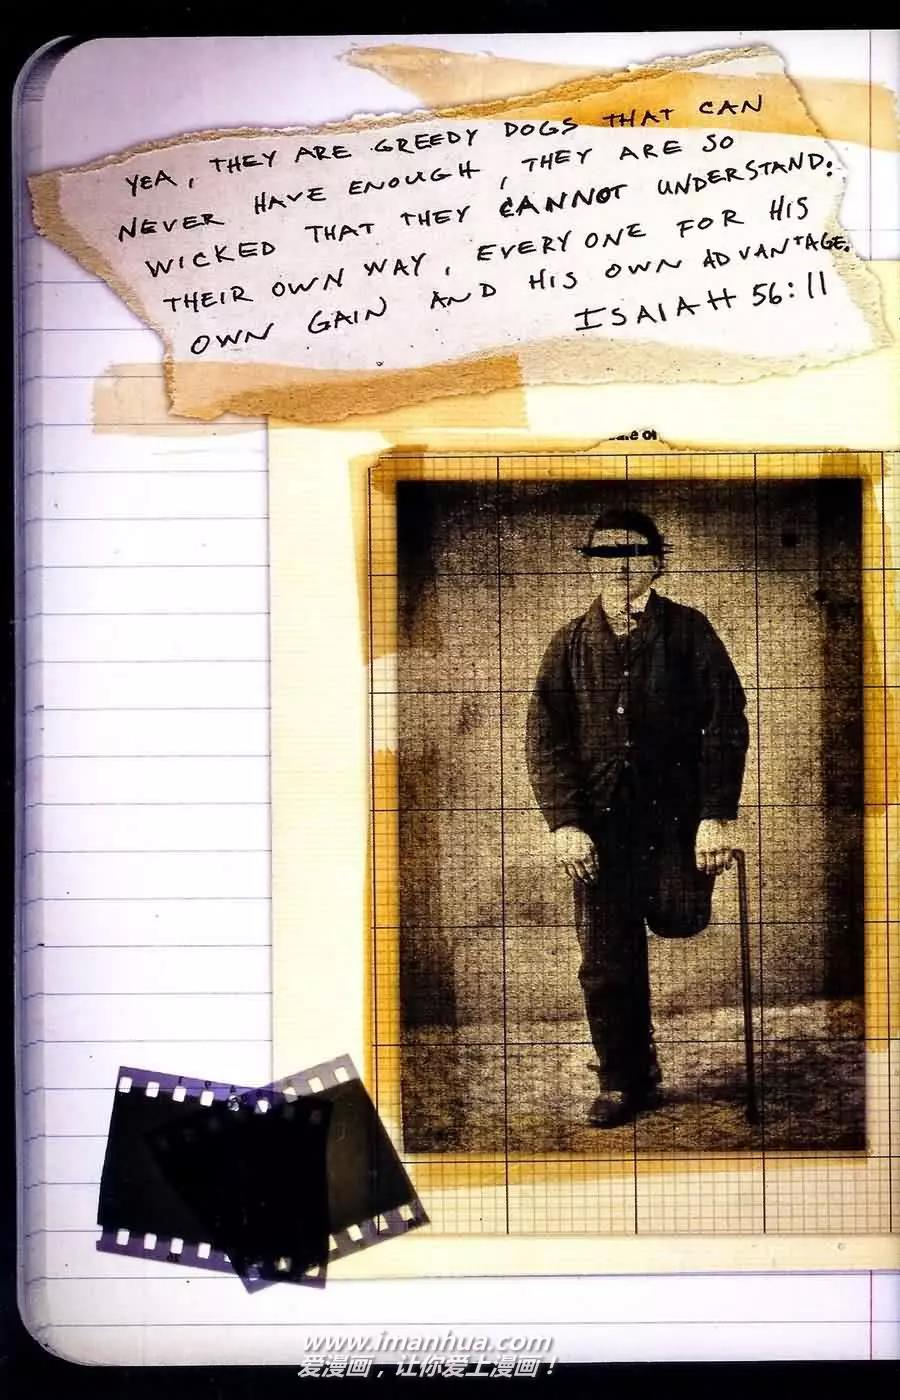 YEA, THEY ARE GREEDY DOGS THAT CAN
NEVER HAVE ENOUGH, THEY ARE SO
WICKED THAT THEY CANNOT UNDERSTAND:
THEIR OWN WAY, EVERYONE FOR HIS
OWN GAIN AND HIS OWN ADVANTAGE.
ISAIAH 56:11
www.imanhua.com
爱漫画，让你爱上漫画！